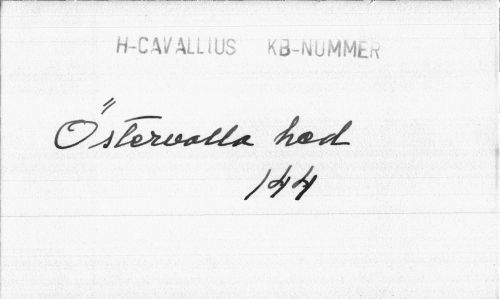 H-CAVALLIUS KB-NUMMER
Östervalla hed
144